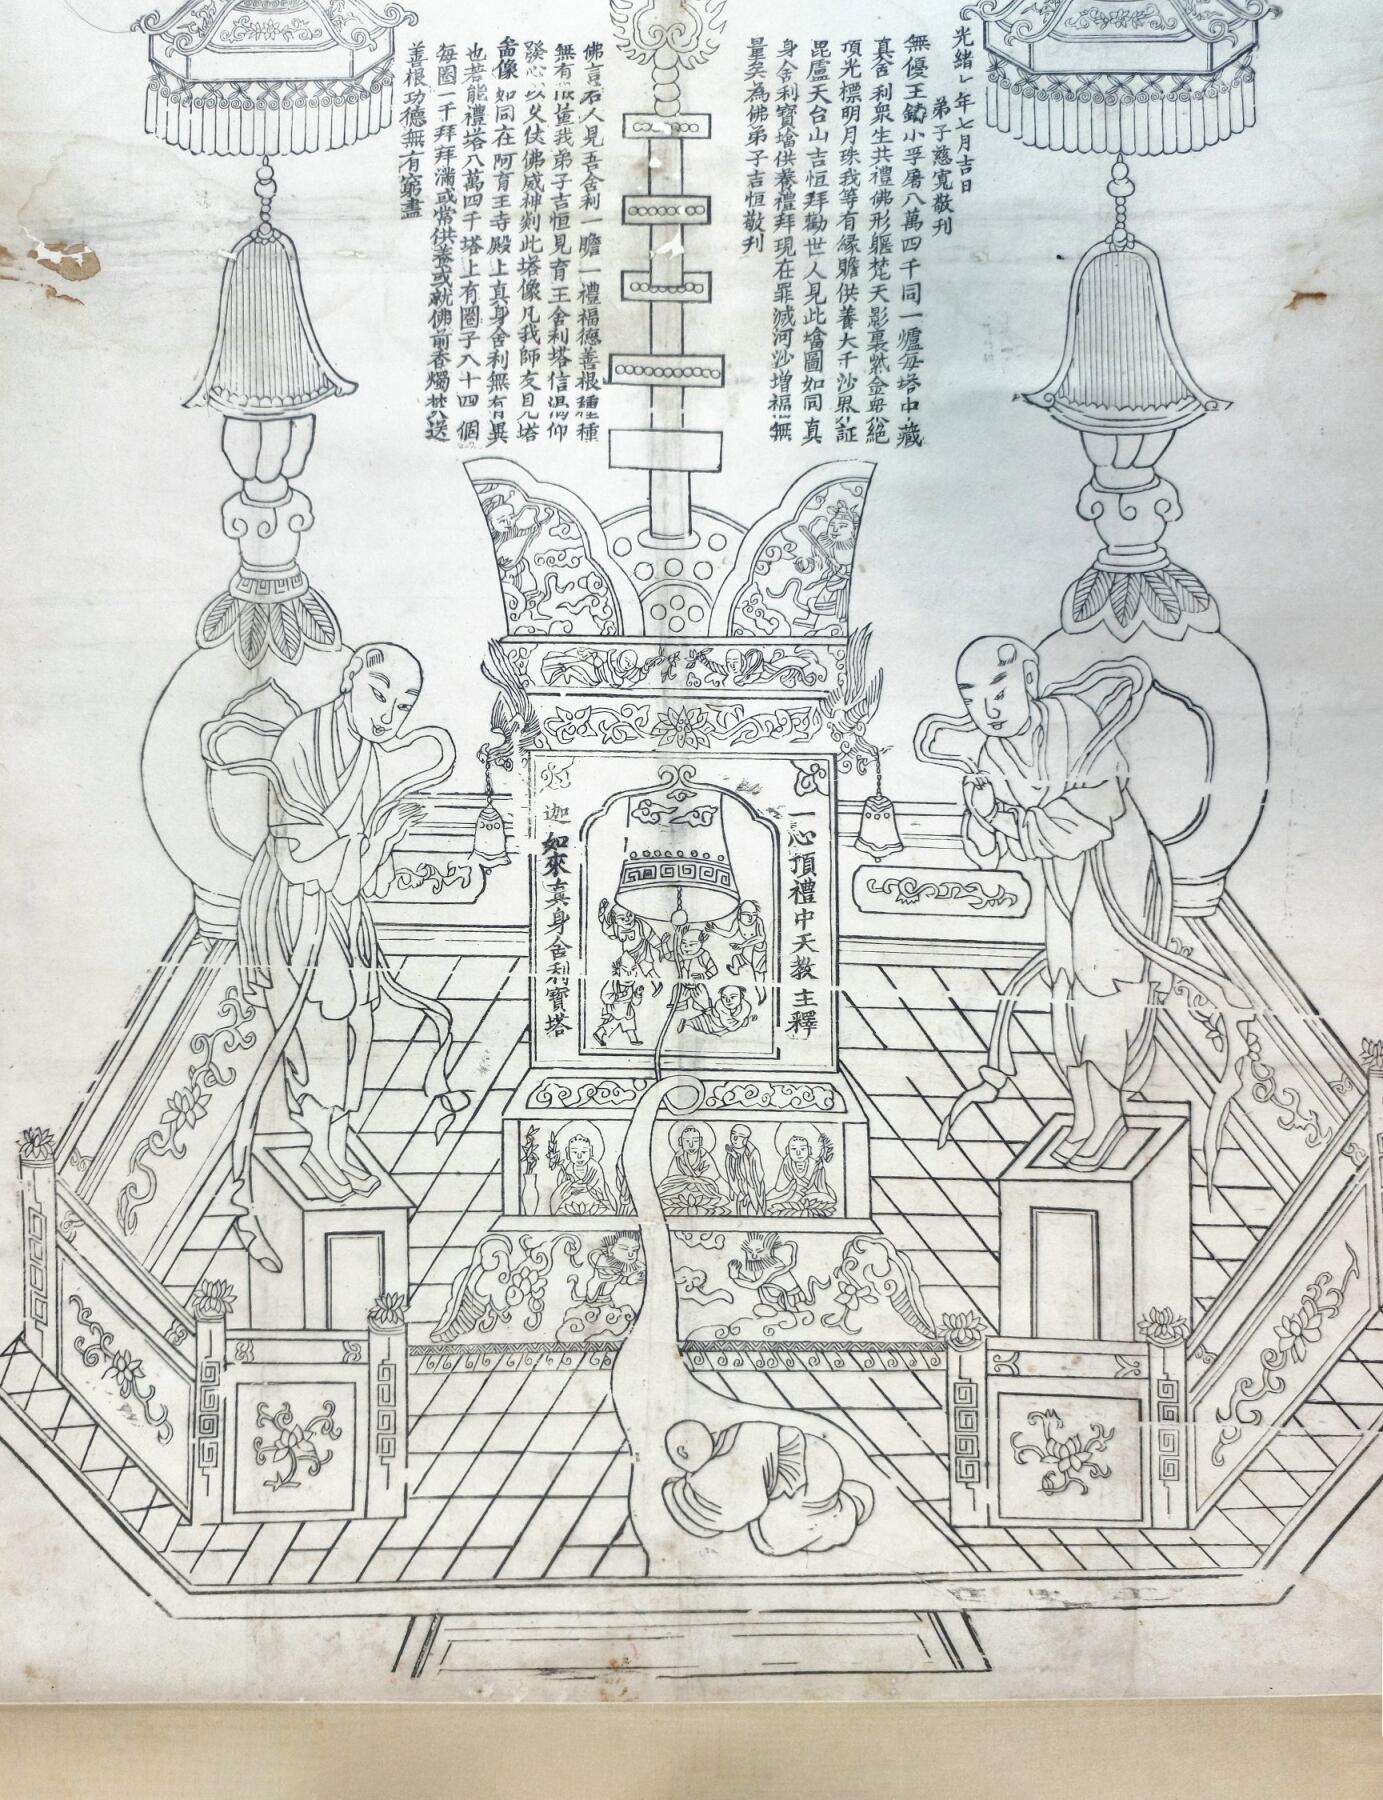 光緒年七月吉日
弟子慈寬敬刊
無優王鑄小浮屠八萬四千同一爐每塔中藏
真舍利衆生共禮佛形軀梵天影裏紫金絕
頂光標明月珠我等有緣瞻供養大千沙界証
毘盧天台山吉恒拜勸世人見此墖圖如同真
身舍利寶墖供養禮拜現在罪滅河沙增福無
量矣為佛弟子吉恒敬刊
佛言若人見吾舍利一瞻一禮福德善根種種
無有限量我弟子吉恒見育王舍利塔信渴仰
發心以久仗佛威神刻此塔像凡我師友見塔
像如同在阿育王寺殿上真身舍利無有異
也若能禮塔八萬四千塔上有圈子八十四個
每圈一千拜拜滿或常供養或就佛前香燭焚送
善根功德無有窮盡
一心頂禮中天教主釋
迦如來真身舍利寶塔